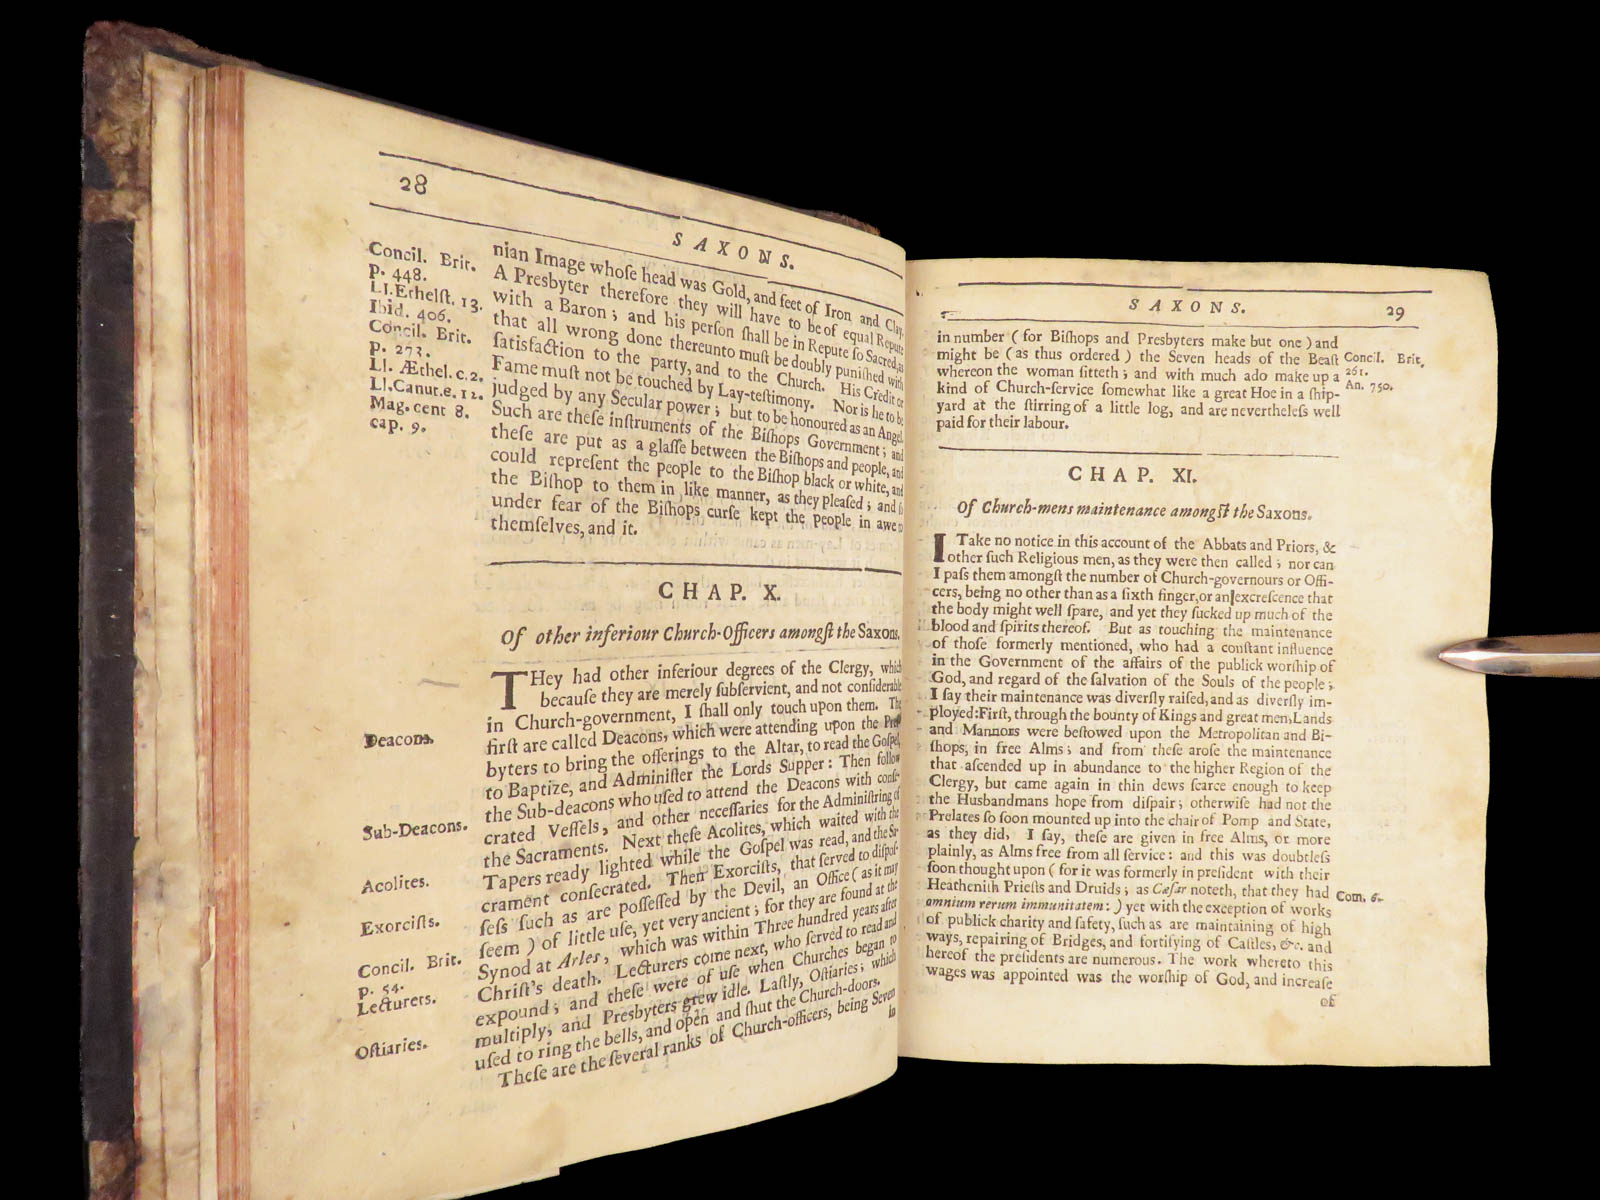 28
SAXONS.
Concil. Brit.
p. 448.
Ll. Ethelſt. 13.
Ibid. 406.
Concil. Brit.
p. 273.
Ll. Æthel. c. 2.
Ll. Canut. e. 12.
Mag. cent 8.
cap. 9.
nian Image whoſe head was Gold, and feet of Iron and Clay.
A Presbyter therefore they will have to be of equal Repute
with a Baron; and his perſon ſhall be in Repute ſo Sacred, as
that all wrong done thereunto muſt be doubly puniſhed with
ſatisfaction to the party, and to the Church. His Credit or
Fame muſt not be touched by Lay-teſtimony. Nor is he to be
judged by any Secular power; but to be honoured as an Angel.
Such are theſe inſtruments of the Biſhops Government; and
theſe are put as a glaſſe between the Biſhops and people, and
could repreſent the people to the Biſhop black or white, and
the Biſhop to them in like manner, as they pleaſed; and ſo
under fear of the Biſhops curſe kept the people in awe to
themſelves, and it.
CHAP. X.
Of other inferiour Church-Officers amongſt the Saxons.
THey had other inferiour degrees of the Clergy, which
becauſe they are merely ſubſervient, and not conſiderable
in Church-government, I ſhall only touch upon them. The
Deacons.
firſt are called Deacons, which were attending upon the Preſ-
byters to bring the offerings to the Altar, to read the Goſpel,
to Baptize, and Adminiſter the Lords Supper: Then follow
Sub-Deacons.
the Sub-deacons who uſed to attend the Deacons with conſe-
crated Veſſels, and other neceſſaries for the Adminiſtring of
the Sacraments. Next theſe Acolites, which waited with the
Acolites.
Tapers ready lighted while the Goſpel was read, and the Sa-
crament conſecrated. Then Exorciſts, that ſerved to diſpoſ-
Exorciſts.
ſeſs ſuch as are poſſeſſed by the Devil, an Office (as it may
ſeem) of little uſe, yet very ancient; for they are found at the
Concil. Brit.
p. 54.
Synod at Arles, which was within Three hundred years after
Lecturers.
Chriſt's death. Lecturers come next, who ſerved to read and
expound; and theſe were of uſe when Churches began to
multiply, and Presbyters grew idle. Laſtly, Oſtiaries; which
Oſtiaries.
uſed to ring the bells, and open and ſhut the Church-doors.
Theſe are the ſeveral ranks of Church-officers, being Seven
in
SAXONS.
29
in number (for Biſhops and Presbyters make but one) and
might be (as thus ordered) the Seven heads of the Beaſt
whereon the woman ſitteth; and with much ado make up a
kind of Church-ſervice ſomewhat like a great Hoe in a ſhip-
yard at the ſtirring of a little log, and are nevertheleſs well
paid for their labour.
Concil. Brit.
261.
An. 750.
CHAP. XI.
Of Church-mens maintenance amongſt the Saxons.
I Take no notice in this account of the Abbats and Priors, &
other ſuch Religious men, as they were then called; nor can
I paſs them amongſt the number of Church-governours or Offi-
cers, being no other than as a ſixth finger, or an excreſcence that
the body might well ſpare, and yet they ſucked up much of the
blood and ſpirits thereof. But as touching the maintenance
of thoſe formerly mentioned, who had a conſtant influence
in the Government of the affairs of the publick worſhip of
God, and regard of the ſalvation of the Souls of the people;
I ſay their maintenance was diverſly raiſed, and as diverſly im-
ployed: Firſt, through the bounty of Kings and great men, Lands
and Mannors were beſtowed upon the Metropolitan and Bi-
ſhops, in free Alms; and from theſe aroſe the maintenance
that aſcended up in abundance to the higher Region of the
Clergy, but came again in thin dews ſcarce enough to keep
the Husbandmans hope from diſpair; otherwiſe had not the
Prelates ſo ſoon mounted up into the chair of Pomp and State,
as they did, I ſay, theſe are given in free Alms, or more
plainly, as Alms free from all ſervice: and this was doubtleſs
ſoon thought upon (for it was formerly in preſident with their
Heatheniſh Prieſts and Druids; as Cæſar noteth, that they had
Com. 6.
omnium rerum immunitatem:) yet with the exception of works
of publick charity and ſafety, ſuch as are maintaining of high
ways, repairing of Bridges, and fortifying of Caſtles, &c. and
hereof the preſidents are numerous. The work whereto this
wages was appointed was the worſhip of God, and increaſe
of